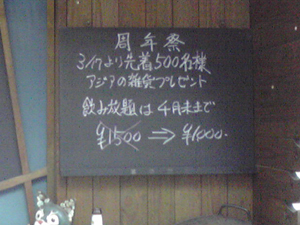 周年祭
3/17より先着500名様
アジアの雑貨プレゼント
飲み放題は4月末まで
¥1500⇒¥1000-